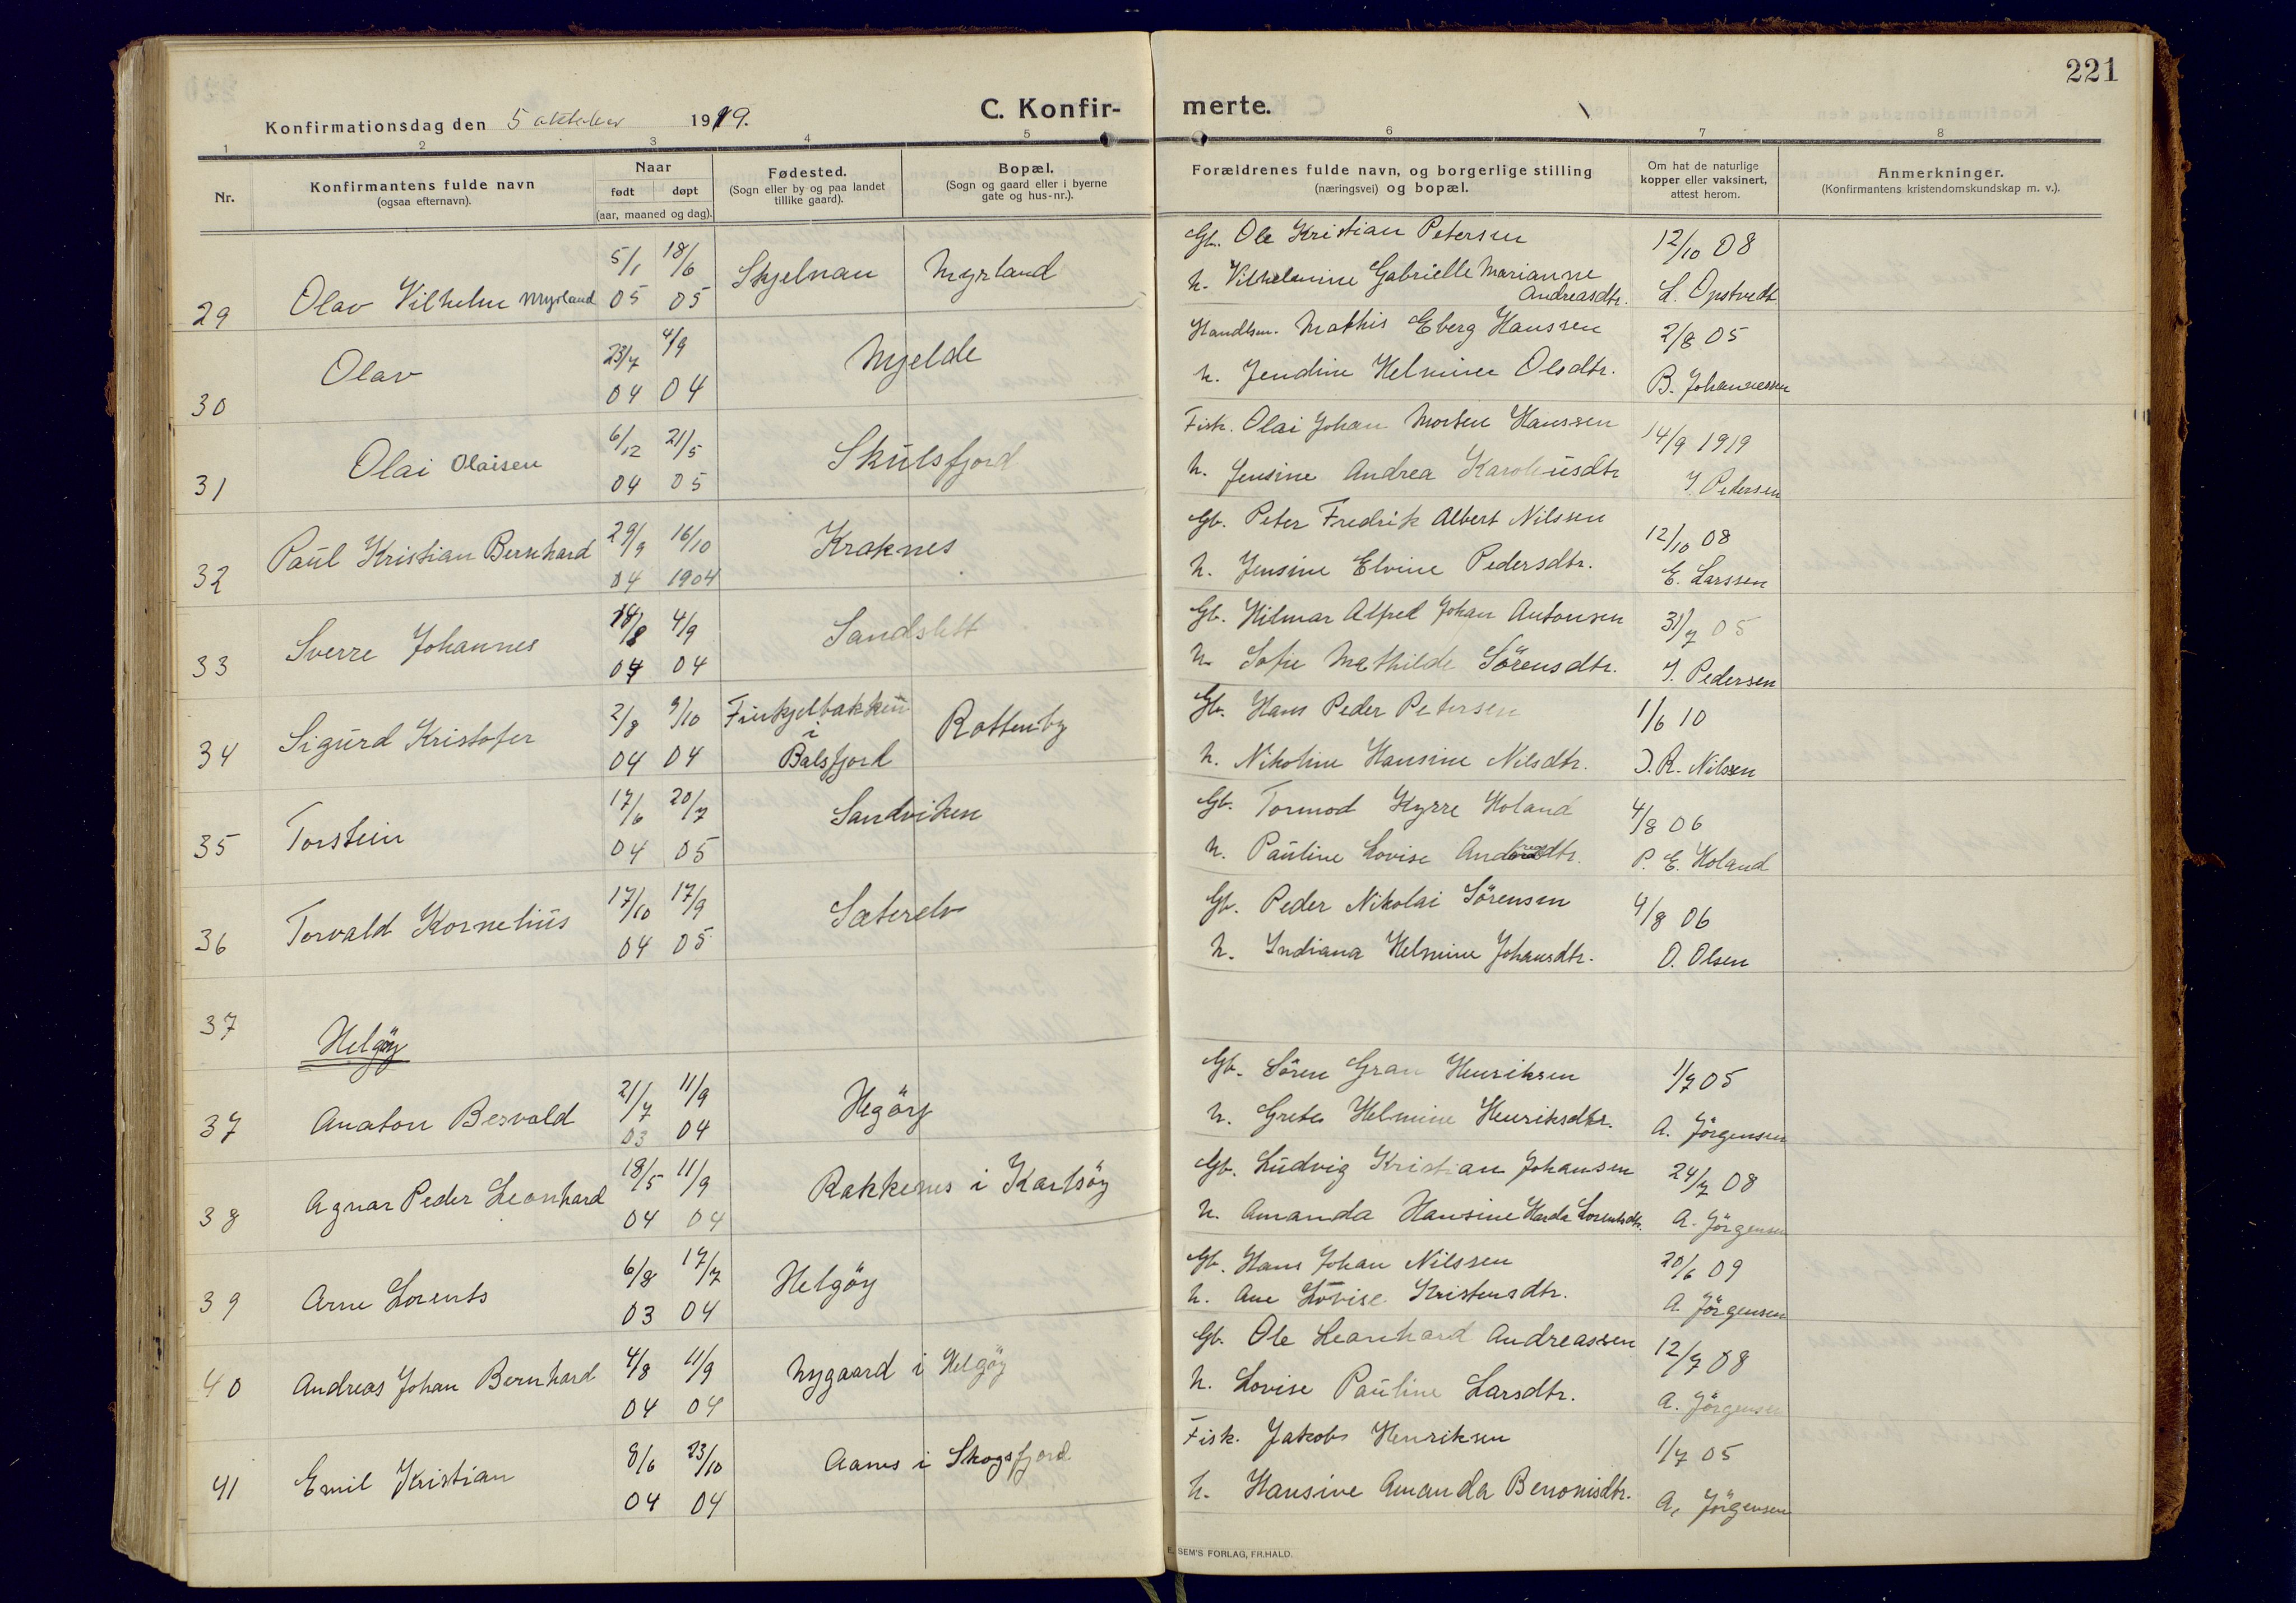 221
Konfirmationsdag den 5 oktober 1919.
C. Konfir-
merte.
1 2 3 4 5 6 7 8
Nr.
Konfirmantens fulde navn
(ogsaa efternavn).
Naar
født døpt
(aar, maaned og dag).
Fødested.
(Sogn eller by og paa landet
tillike gaard).
Bopæl.
(Sogn og gaard eller i byerne
gate og hus-nr.).
Forældrenes fulde navn, og borgerlige stilling
(næringsvei) og bopæl.
Om hat de naturlige
kopper eller vaksinert,
attest herom.
Anmerkninger.
(Konfirmantens kristendomskundskap m. v.).
5/1 18/6 Skjelnan Myrland Gb. Ole Kristian Petersen 12/10 08
29 Olav Vilhelm Myrland 05 05 h. Vilhelmine Gabrielle Marianne Andreasdtr. L. Opstvedt
23/7 4/9 Mjelde Handlsm. Mathis Eberg Hanssen 2/8 05
30 Olav 04 04 h. Jendine Helmine Olsdtr. B. Johannessen
6/12 21/5 Skulsfjord Fisk. Olai Johan Morten Hanssen 14/9 1919
31 Olai Olaisen 04 05 h. Jensine Andrea Karoliusdtr J. Pedersen
29/9 16/10 Kraknes Gb. Peter Fredrik Albert Nilssen 12/10 08
32 Paul Kristian Bernhard 04 1904 h. Jensine Elvine Pedersdtr. E. Larssen
18/8 4/9 Sandslett Gb. Hilmar Alfred Johan Antonsen 31/7 05
33 Sverre Johannes 04 04 h. Sofie Mathilde Sörensdtr. J. Pedersen
2/8 9/10 Finkjelbakken i Balsfjord Rottenby Gb. Hans Peder Petersen 1/6 10
34 Sigurd Kristofer 04 04 h. Nikoline Hansine Nilsdtr. J. R. Nilsen
17/6 20/7 Sandviken Gb. Tormod Kyrre Holand 4/8 06
35 Torstein 04 05 h. Pauline Lovise Andreasdtr. P. E. Holand
17/10 17/9 Sæterelv Gb. Peder Nikolai Sörensen 4/8 06
36 Torvald Kornelius 04 05 h. Indiana Helmine Johansdtr. O. Olsen
37
Helgöy
21/7 11/9 Hegöy Gb. Sören Gran Henriksen 1/7 05
37 Anaton Besvald 03 04 h. Grete Helmine Henriksdtr. A. Jörgensen
18/5 11/9 Rakkenes i Karlsöy Gb. Ludvig Kristian Johansen 24/7 08
38 Agnar Peder Leonhard 04 04 h. Amanda Hansine Harda Lorentsdtr. A. Jörgensen
6/8 17/7 Helgöy Gb. Hans Johan Nilssen 20/6 09
39 Arne Lorents 03 04 h. Ane Lovise Kristensdtr. A. Jörgensen
4/8 11/9 Nygaard i Helgöy Gb. Ole Leonhard Andreassen 12/7 08
40 Andreas Johan Bernhard 04 04 h. Lovise Pauline Larsdtr. A. Jörgensen
8/6 23/10 Aanes i Skogsfjord Fisk. Jakob Henriksen 1/7 05
41 Emil Kristian 04 04 h. Hansine Amanda Benonisdtr. A. Jörgensen
E. SEM'S FORLAG, FR.HALD.